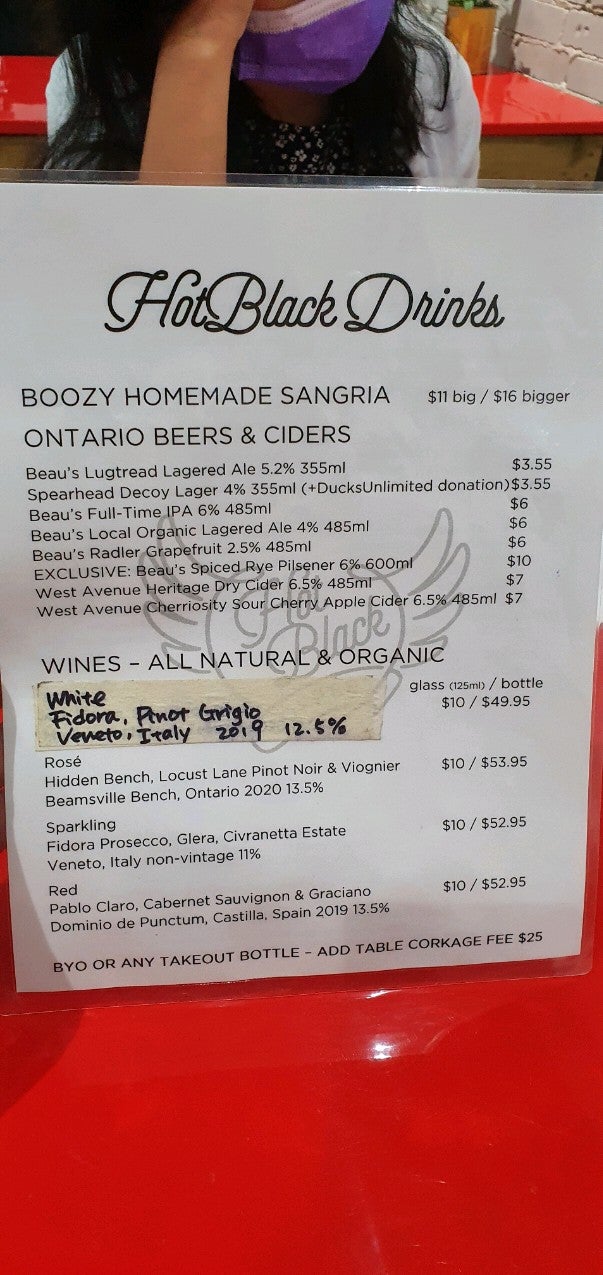 HotBlack Drinks
BOOZY HOMEMADE SANGRIA $11 big / $16 bigger
ONTARIO BEERS & CIDERS
Beau's Lugtread Lagered Ale 5.2% 355ml $3.55
Spearhead Decoy Lager 4% 355ml (+DucksUnlimited donation) $3.55
Beau's Full-Time IPA 6% 485ml $6
Beau's Local Organic Lagered Ale 4% 485ml $6
Beau's Radler Grapefruit 2.5% 485ml $6
EXCLUSIVE: Beau's Spiced Rye Pilsener 6% 600ml $10
West Avenue Heritage Dry Cider 6.5% 485ml $7
West Avenue Cherriosity Sour Cherry Apple Cider 6.5% 485ml $7
Hot
Black
WINES – ALL NATURAL & ORGANIC
glass (125ml) / bottle
White
Fidora, Pinot Grigio $10 / $49.95
Veneto, Italy 2019 12.5%
Rosé
Hidden Bench, Locust Lane Pinot Noir & Viognier $10 / $53.95
Beamsville Bench, Ontario 2020 13.5%
Sparkling
Fidora Prosecco, Glera, Civranetta Estate $10 / $52.95
Veneto, Italy non-vintage 11%
Red
Pablo Claro, Cabernet Sauvignon & Graciano $10 / $52.95
Dominio de Punctum, Castilla, Spain 2019 13.5%
BYO OR ANY TAKEOUT BOTTLE – ADD TABLE CORKAGE FEE $25